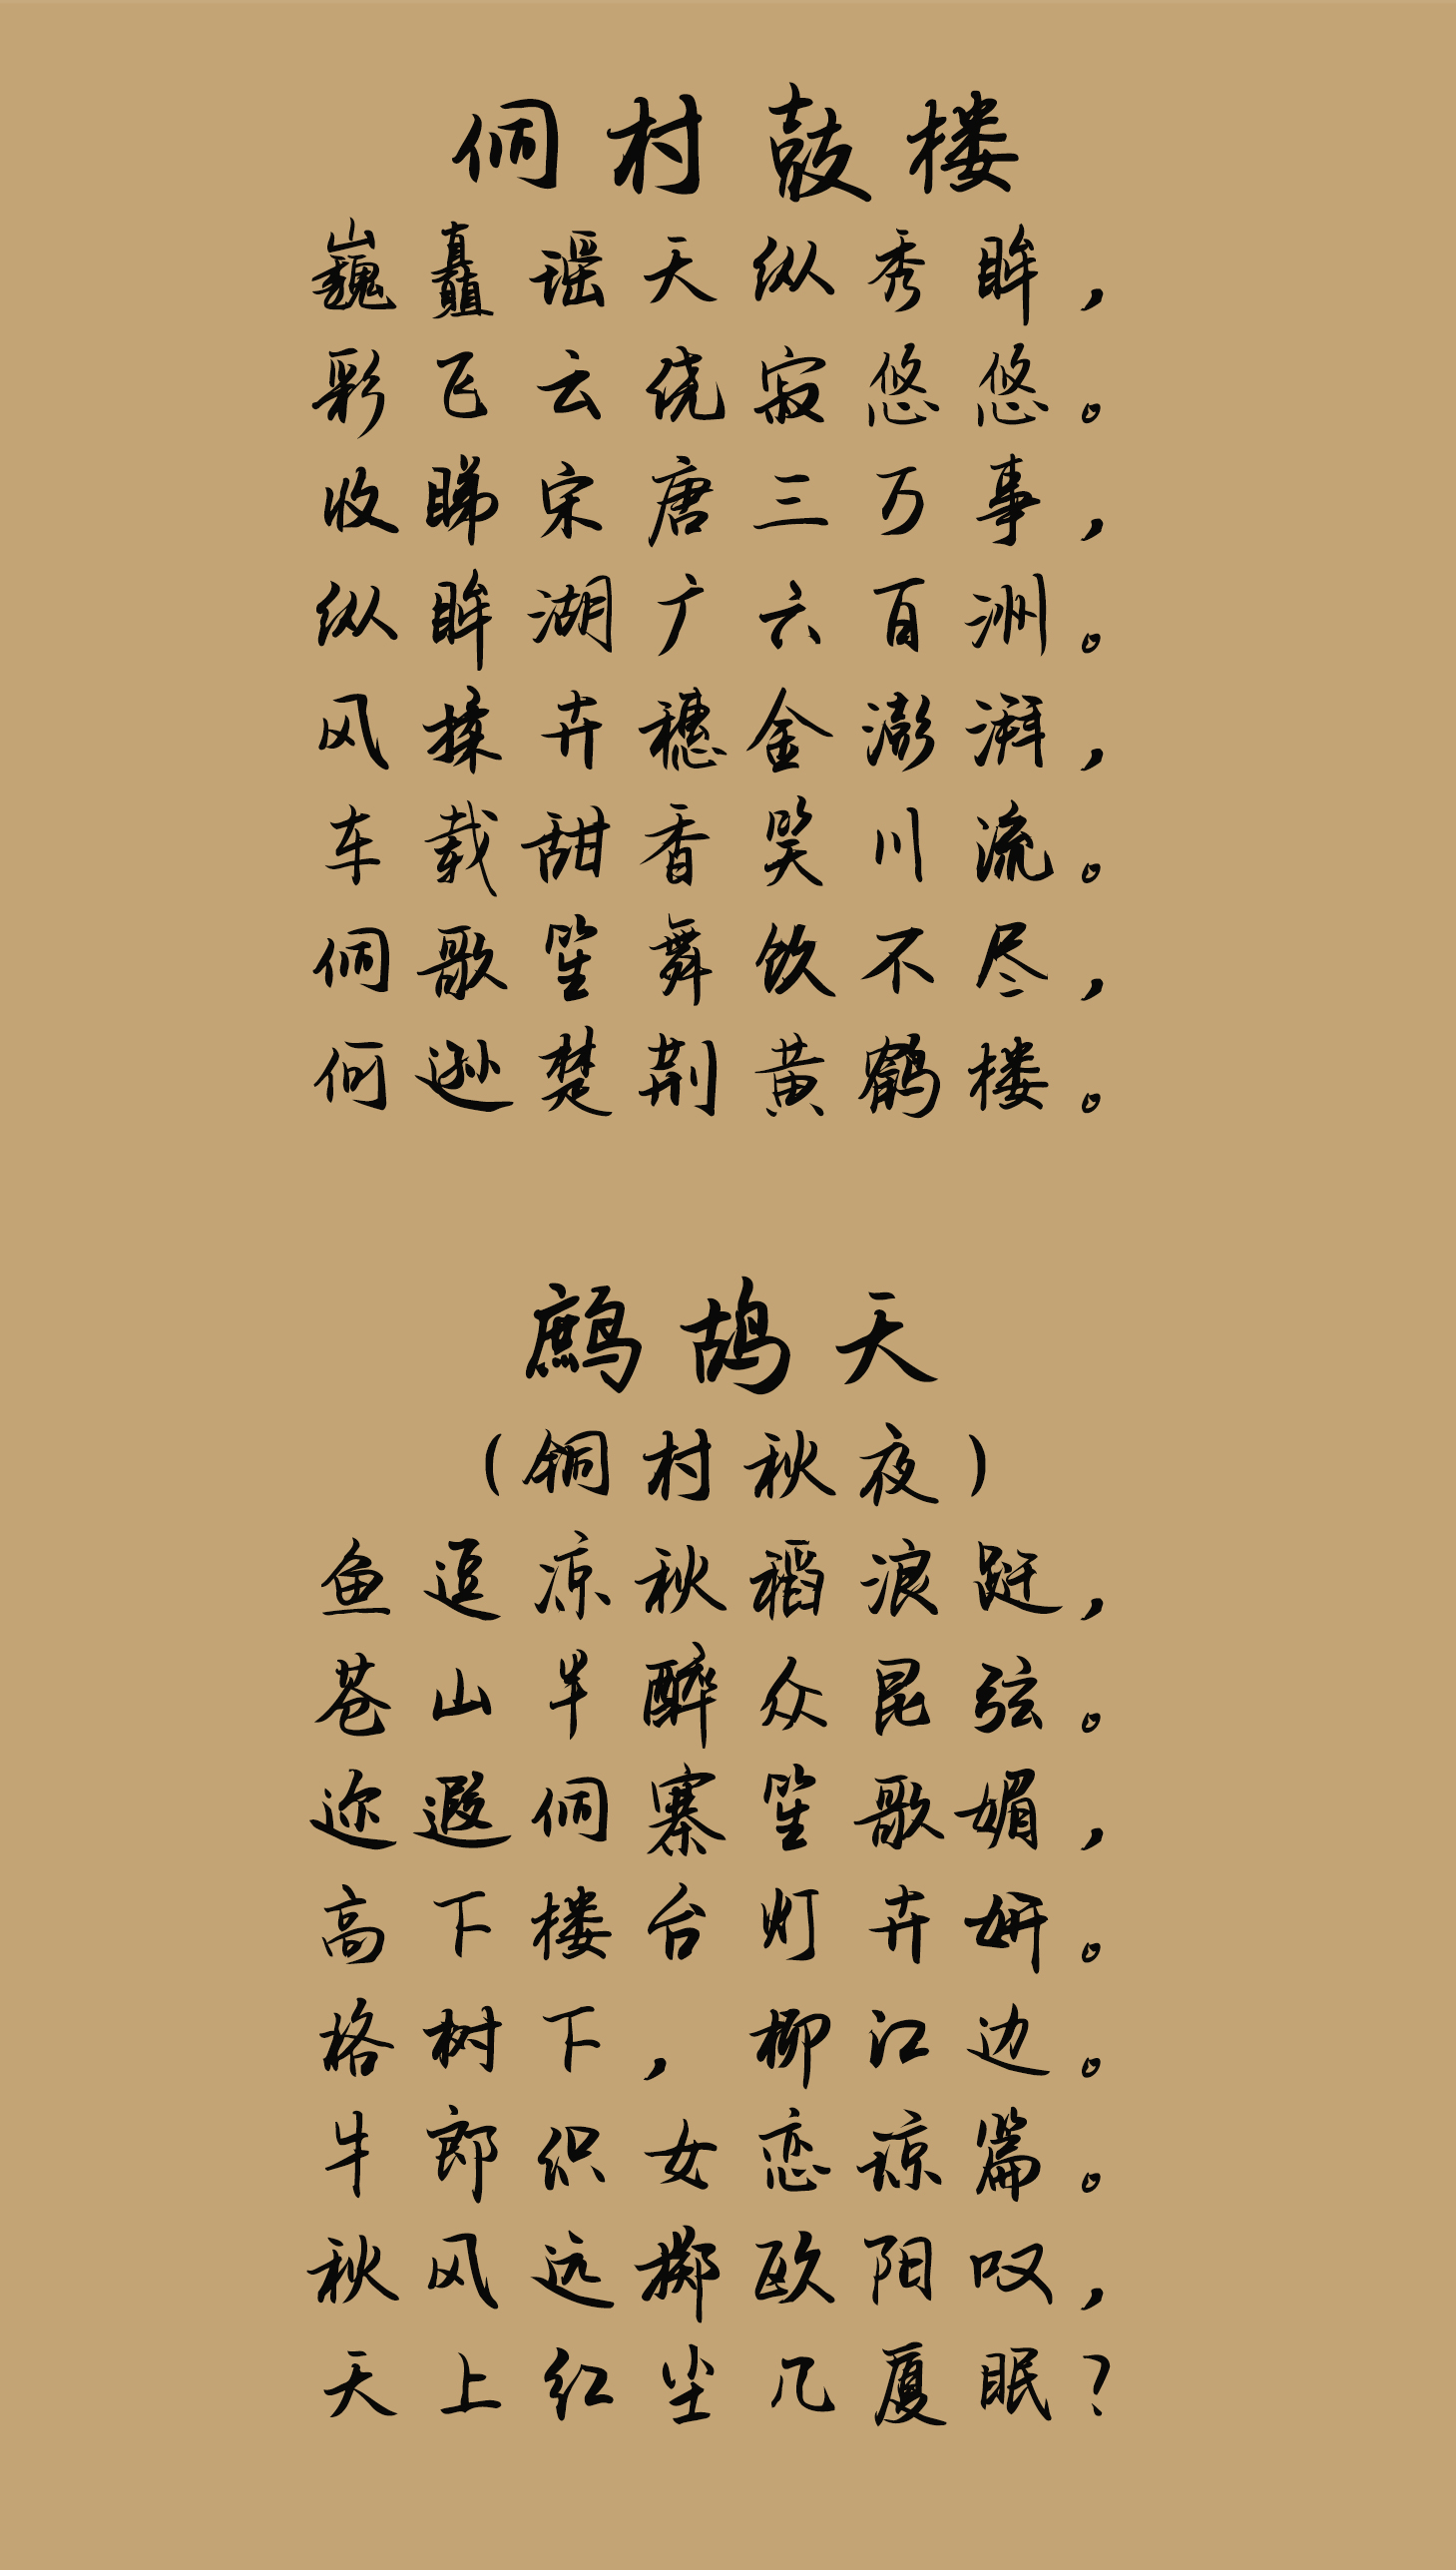 侗村鼓楼
巍矗瑶天纵秀眸，
彩飞云绕寂悠悠。
收睇宋唐三万事，
纵眸湖广六百洲。
风揉卉穗金澎湃，
车载甜香笑川流。
侗歌笙舞饮不尽，
何逊楚荆黄鹤楼。
鹧鸪天
（铜村秋夜）
鱼逗凉秋稻浪跹，
苍山半醉众昆弦。
迩遐侗寨笙歌媚，
高下楼台灯卉妍。
格树下，柳江边。
牛郎织女恋琼篇。
秋风远掷欧阳叹，
天上红尘几厦眠？